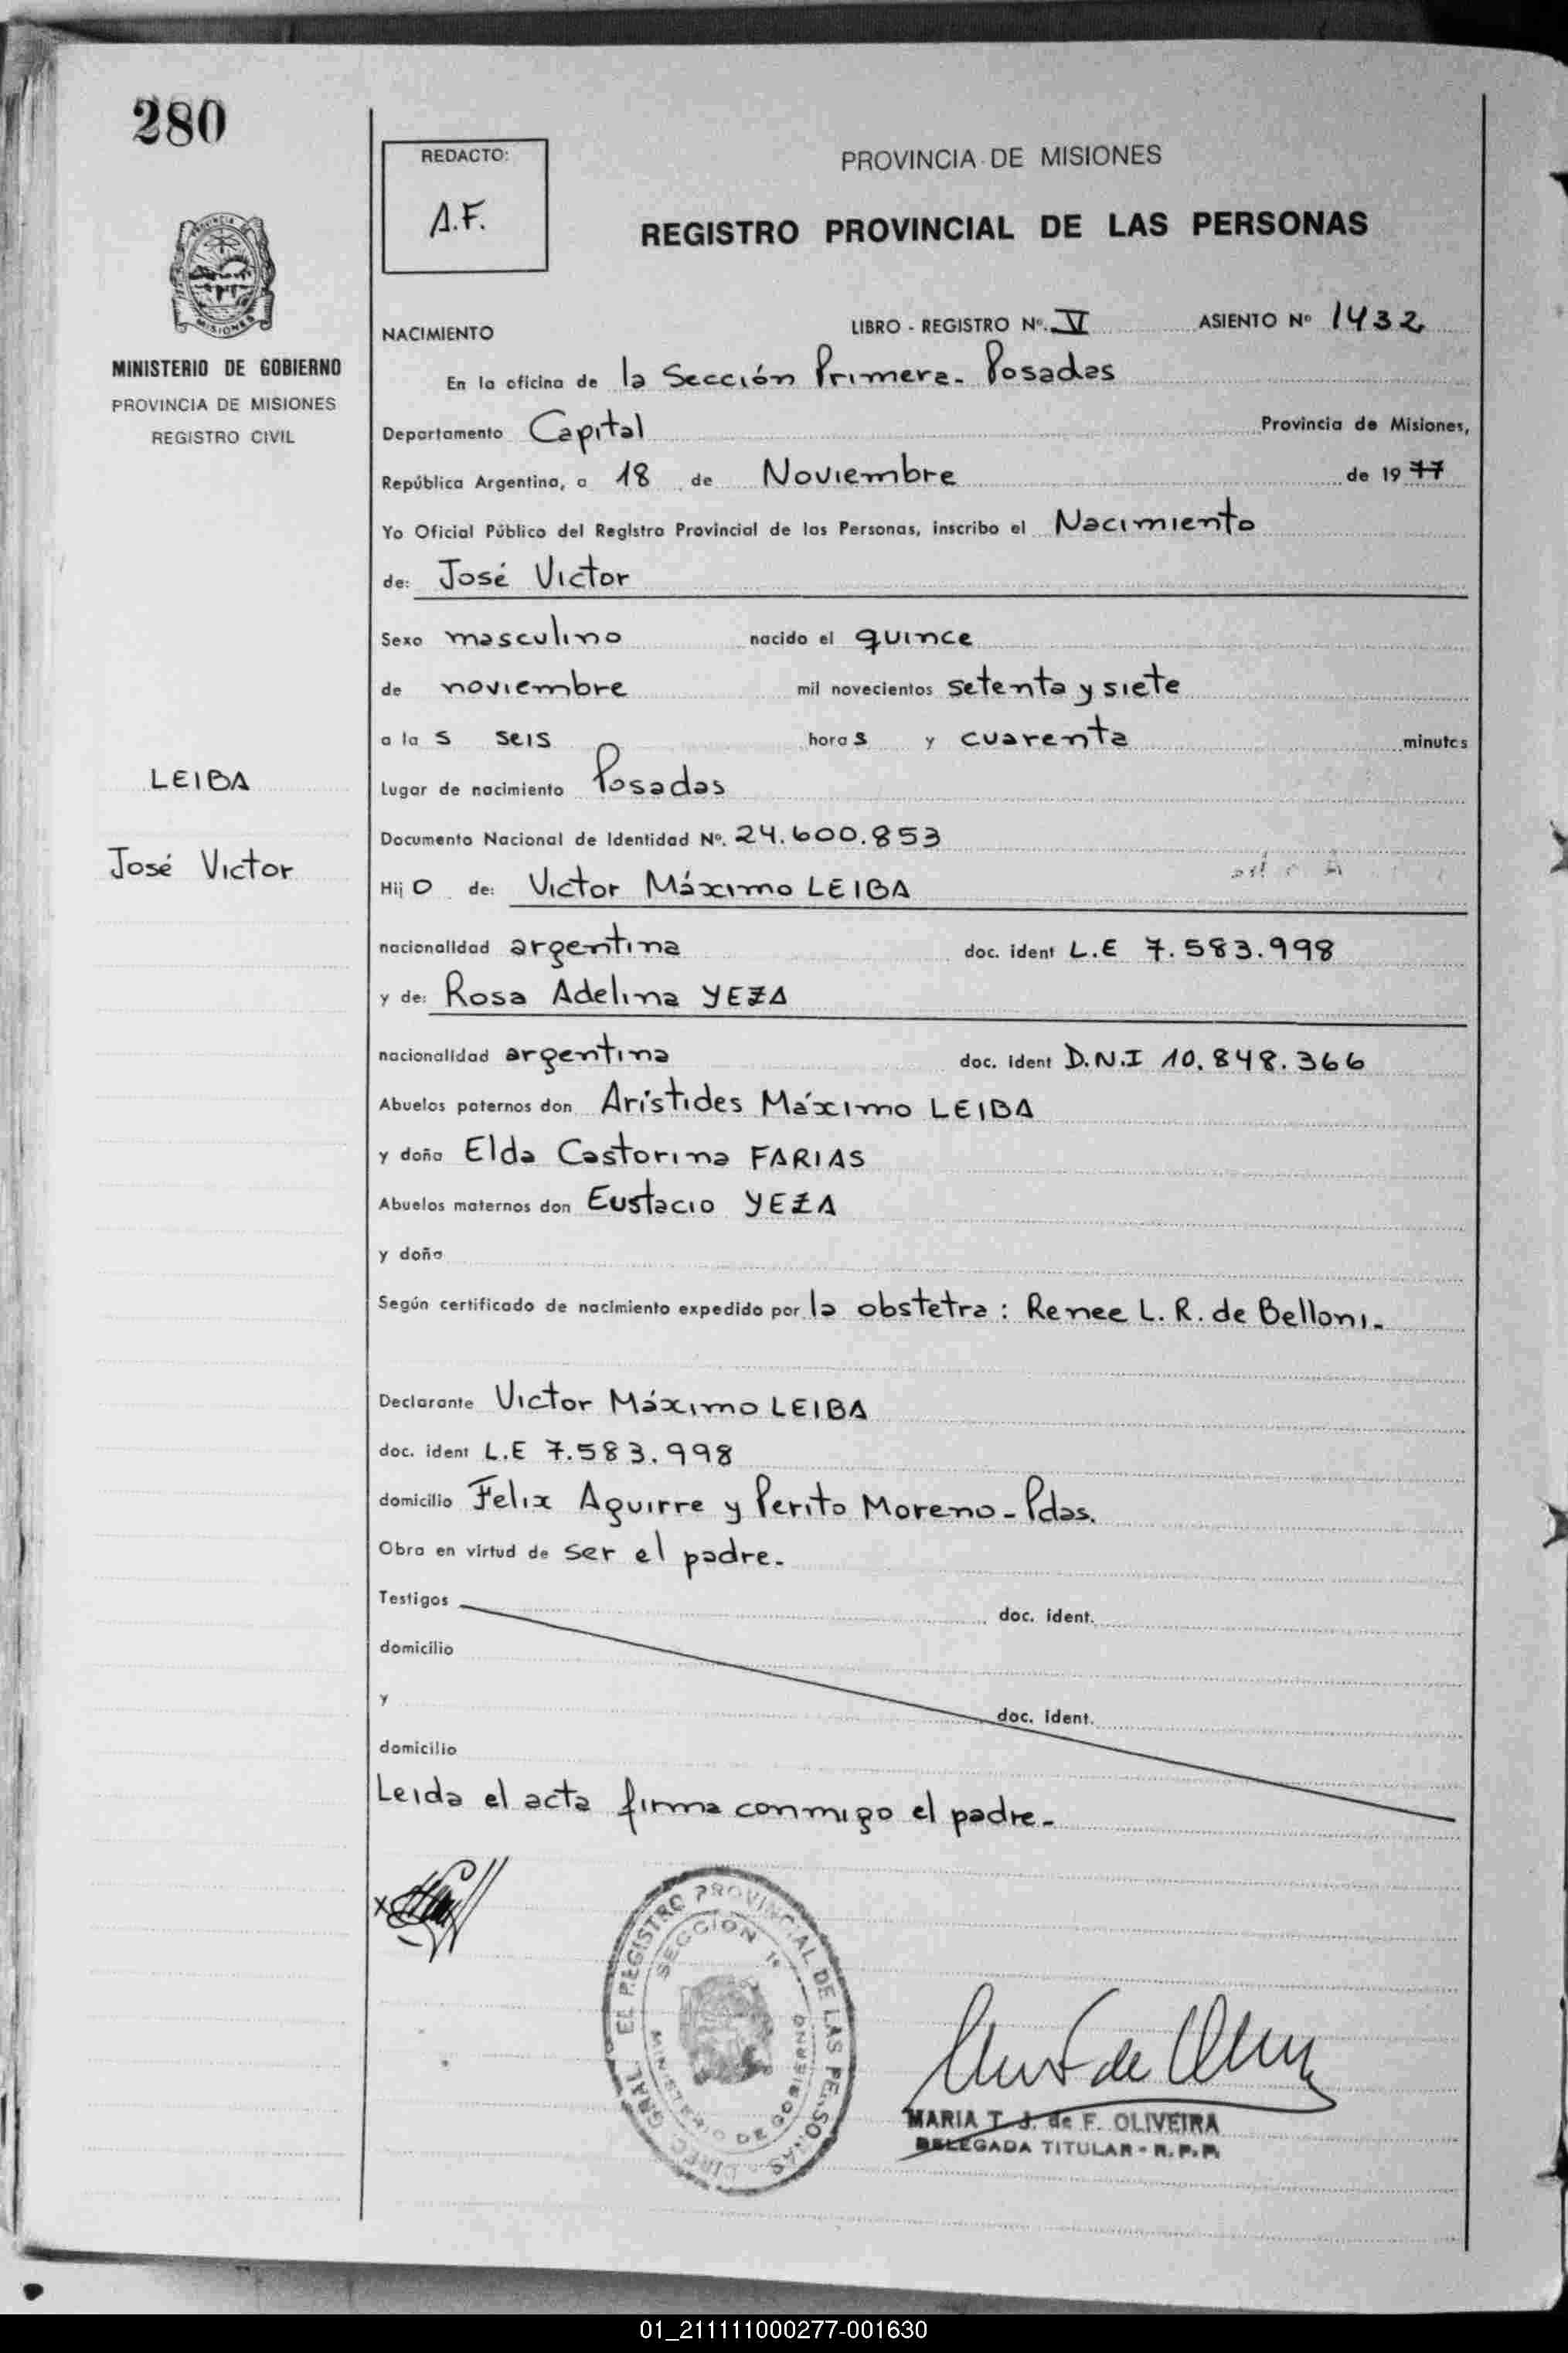 280
REDACTO:
A.F.
PROVINCIA DE MISIONES
REGISTRO PROVINCIAL DE LAS PERSONAS
MISIONES
MINISTERIO DE GOBIERNO
PROVINCIA DE MISIONES
REGISTRO CIVIL
NACIMIENTO LIBRO - REGISTRO Nº. V ASIENTO Nº 1432
En la oficina de la Sección Primera. Posadas
Departamento Capital Provincia de Misiones,
República Argentina, a 18 de Noviembre de 1977
Yo Oficial Público del Registro Provincial de las Personas, inscribo el Nacimiento
de: José Victor
Sexo masculino nacido el quince
de noviembre mil novecientos setenta y siete
a la s seis horas y cuarenta minutos
LEIBA
José Victor
Lugar de nacimiento Posadas
Documento Nacional de Identidad Nº. 24.600.853
Hijo de: Victor Máximo LEIBA
nacionalidad argentina doc. ident L.E 7.583.998
y de: Rosa Adelina YEZA
nacionalidad argentina doc. ident D.N.I 10.848.366
Abuelos paternos don Arístides Máximo LEIBA
y doña Elda Castorina FARIAS
Abuelos maternos don Eustacio YEZA
y doña
Según certificado de nacimiento expedido por la obstetra: Renee L. R. de Belloni.
Declarante Victor Máximo LEIBA
doc. ident L.E 7.583.998
domicilio Felix Aguirre y Perito Moreno - Pdas.
Obra en virtud de ser el padre.
Testigos doc. ident.
domicilio
y doc. ident.
domicilio
Leida el acta firma conmigo el padre.
DIREC. GRAL. EL REGISTRO PROVINCIAL DE LAS PERSONAS
SECCION 1ª
MINISTERIO DE GOBIERNO
MARIA T. J. de F. OLIVEIRA
DELEGADA TITULAR - R.P.P.
01_211111000277-001630